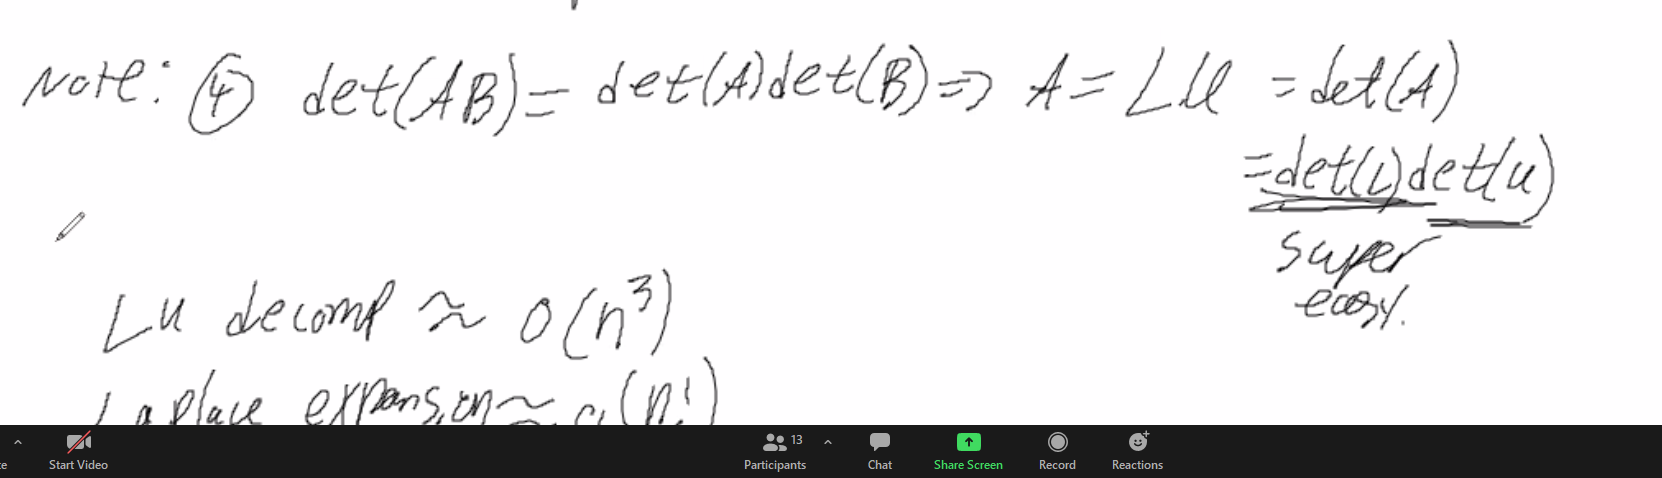 Note: ④ det(AB) = det(A)det(B) => A = LU = det(A)
= det(L) det(U)
super
easy.
LU decomp ≈ O(n³)
Laplace expansion ≈ O(n!)
Start Video
13
Participants
Chat
Share Screen
Record
Reactions